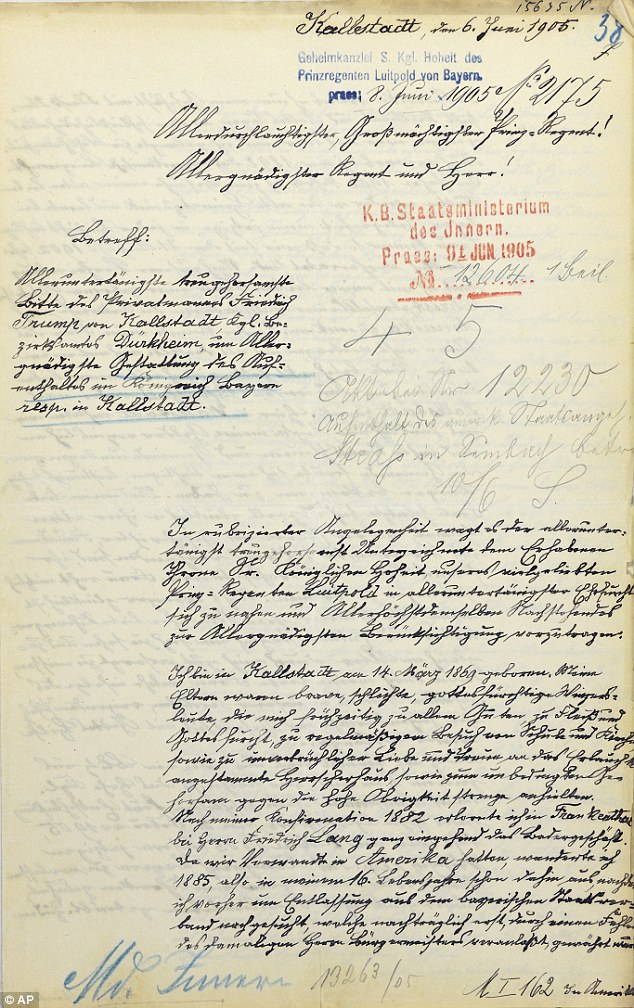 15625 N.
38
Kallstadt, den 6. Juni 1905.
Geheimkanzlei S. Kgl. Hoheit des
Prinzregenten Luitpold von Bayern.
praes: 8. Juni 1905 No 2175
Allerdurchlauchtigster, Großmächtigster Prinz-Regent!
Allergnädigster Regent und Herr!
K.B. Staatsministerium
des Innern.
Praes: 9. JUN. 1905
No. 12604 1 Beil
Betreff:
Alleruntertänigste treugehorsamste
Bitte des Privatmannes Friedrich
Trump von Kallstadt, Kgl. Be-
zirksamts Dürkheim, um Aller-
gnädigste Gestattung des Auf-
enthaltes im Königreich Bayern
resp. in Kallstadt.
4 5
12230
Aufenthalt des amerik. Staatsangeh.
in betr
10/6 S.
In rubrizierter Angelegenheit wagt es der allerunter-
tänigst treugehorsamst Unterzeichnete dem Erhabenen
Throne Sr. Königlichen Hoheit unseres vielgeliebten
Prinz-Regenten Luitpold in alleruntertänigster Ehrfurcht
sich zu nahen und Allerhöchstdemselben Nachstehendes
zur Allergnädigsten Berücksichtigung vorzutragen.
Ich bin in Kallstadt am 14. März 1869 geboren. Meine
Eltern waren brave, schlichte, gottesfürchtige Winzers-
leute, die mich frühzeitig zu allem Guten, zu Fleiß und
Gottesfurcht, zu regelmäßigem Besuch von Schule und Kirche
sowie zu unverbrüchlicher Liebe und Treue an das Erlauchte
angestammte Herrscherhaus sowie zum unbedingten Ge-
horsam gegen die hohe Obrigkeit strenge anhielten.
Nach meiner Konfirmation 1882 erlernte ich in Frankenthal
bei Herrn Friedrich Lang ganz eingehend das Badergeschäft.
Da wir Verwandte in Amerika hatten, wanderte ich
1885, also in meinem 16. Lebensjahre schon dahin aus, nachdem
ich vorher um Entlassung aus dem bayerischen Staatsver-
band nachgesucht, welche nachträglich erst, durch einen Fehler
des damaligen Herrn Bürgermeisters veranlaßt, gewährt wurde.
Md. Innern 13263/05
M I 162 In Amerika
© AP